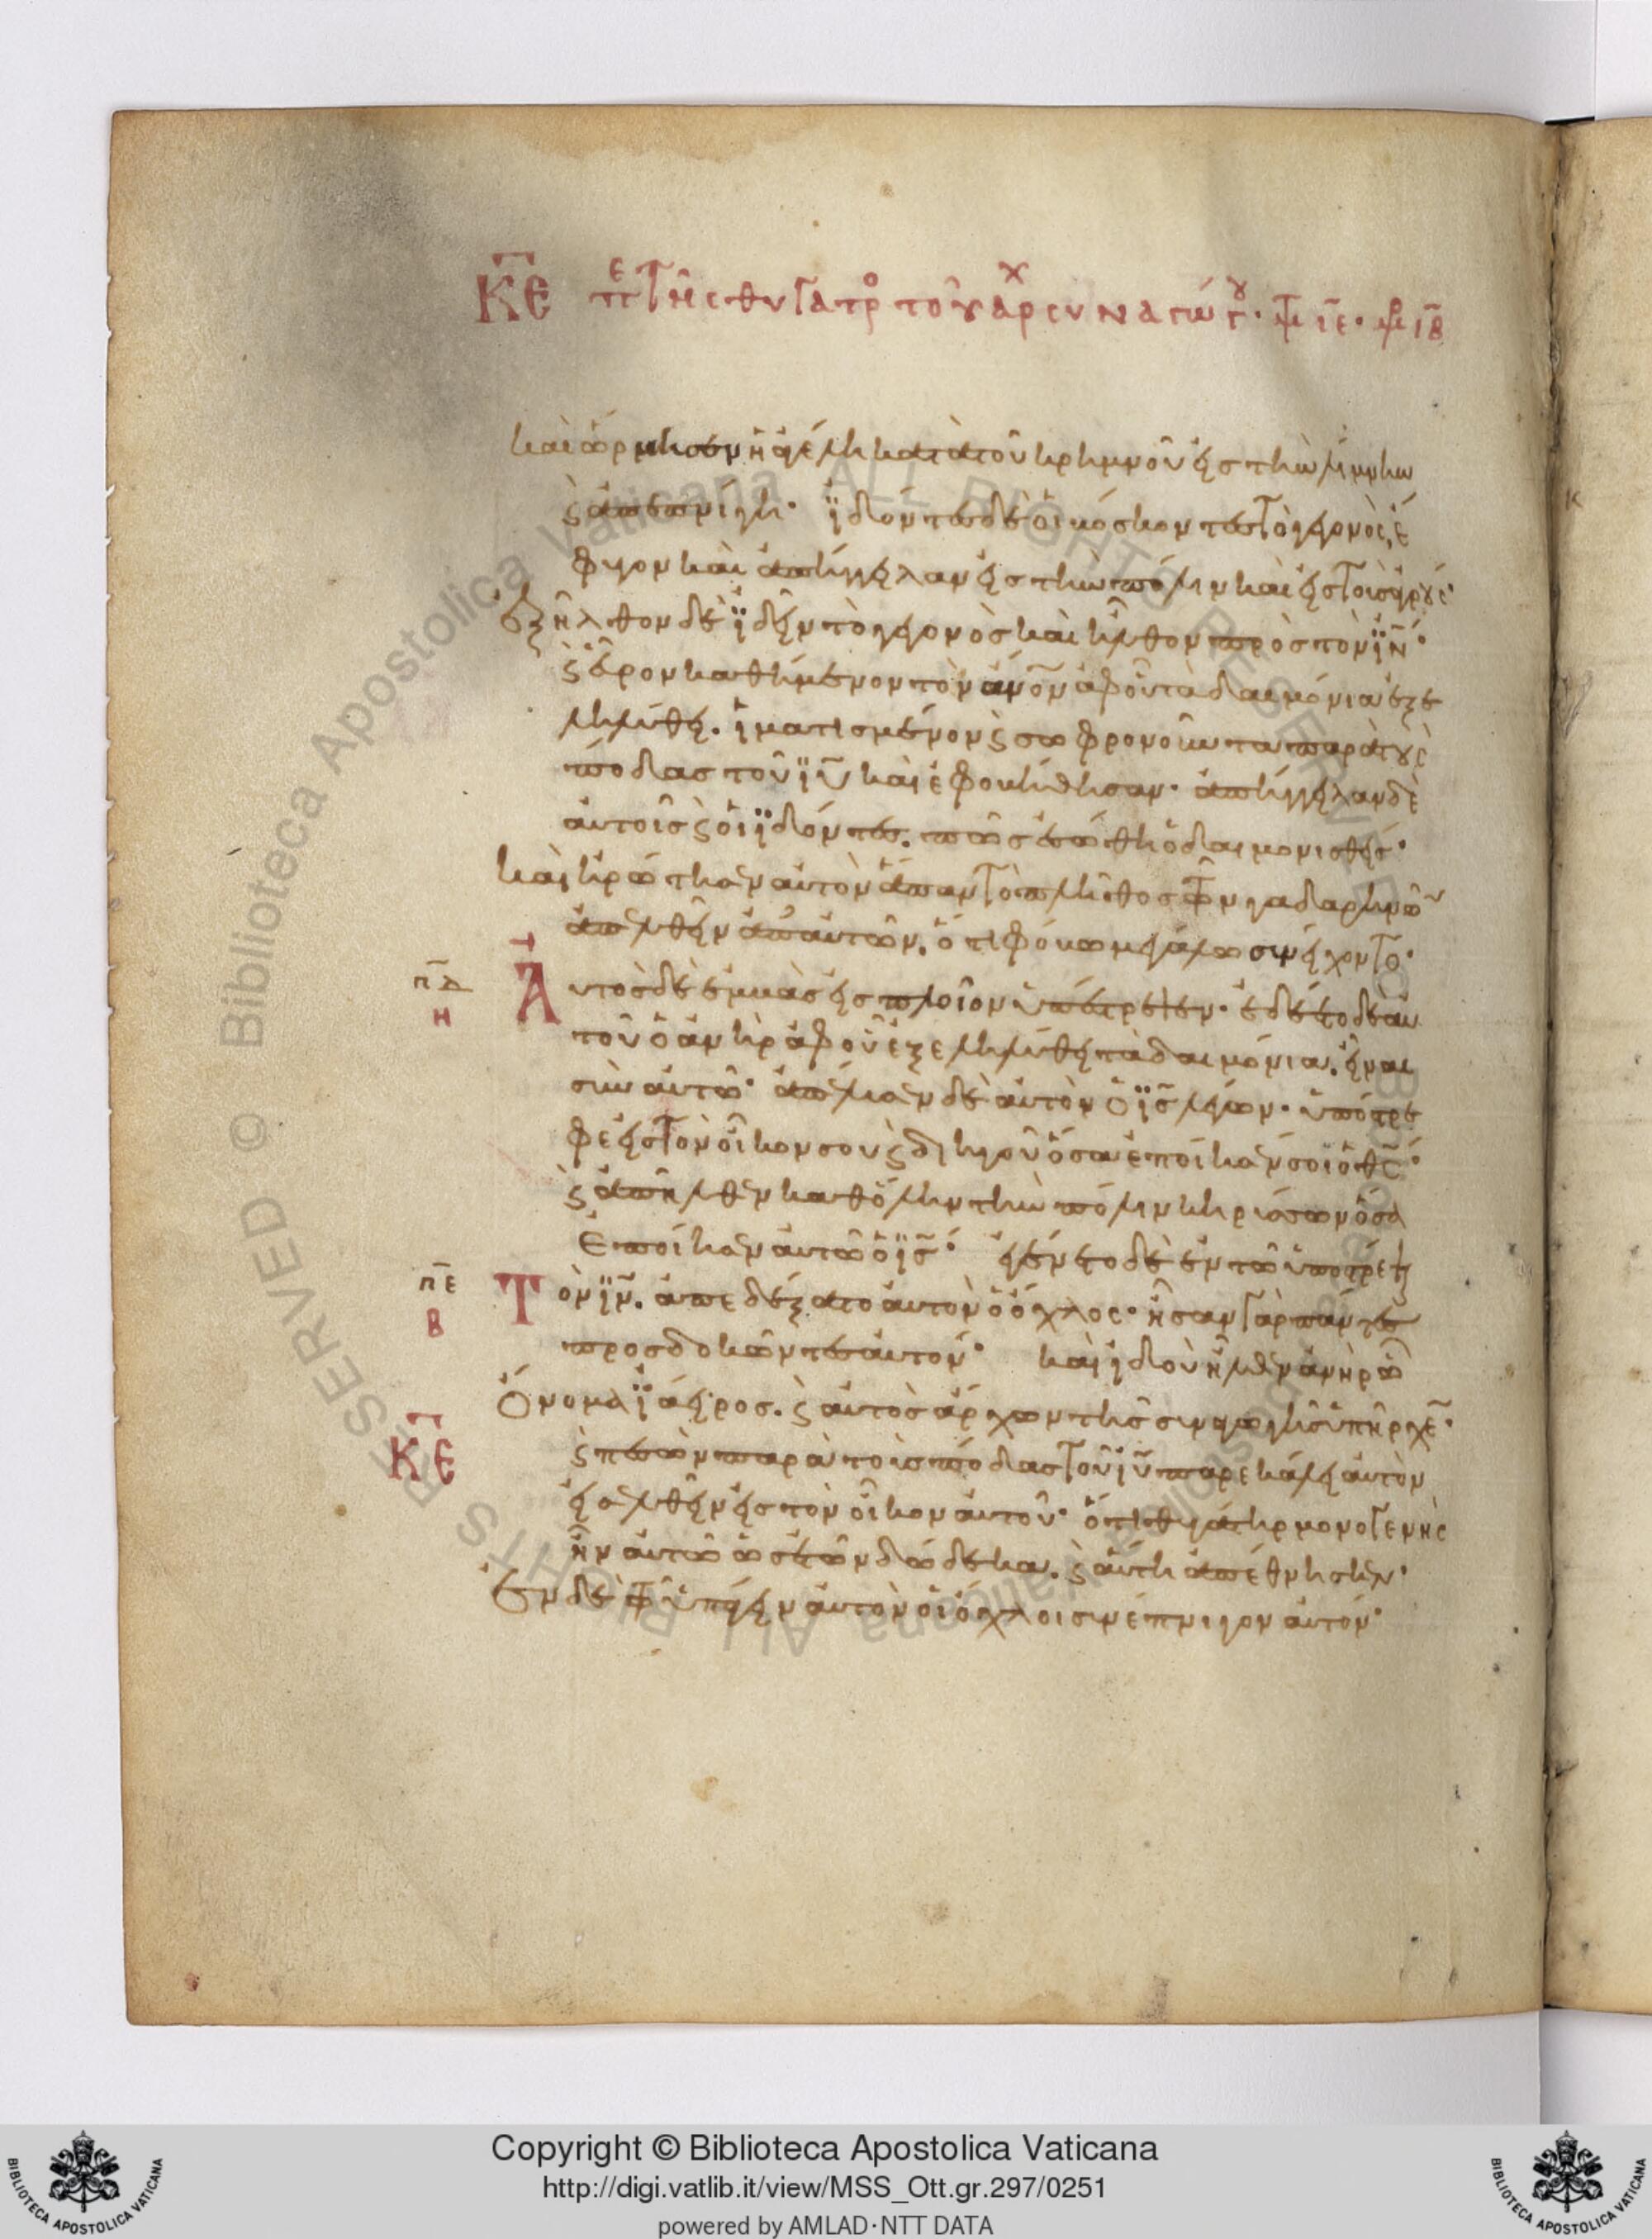 ΚΕ πε τῆς θυγατρο τοῦ αρχ συναγώγου· Μ ιε· Μρ ιβ
και ὥρμησεν ἡ ἀγέλη κατὰ τοῦ κρημνοῦ εἰς τὴν λίμνην
ϛ ἀπεπνίγη· ἰδόντες δὲ οἱ βόσκοντες τὸ γεγονὸς, ἔ
φυγον καὶ ἀπήγγειλαν εἰς τὴν πόλιν καὶ εἰς τοὺς ἀγρούς·
ἐξῆλθον δὲ ἰδεῖν τὸ γεγονὸς καὶ ἦλθον πρὸς τὸν ιν·
ϛ εὗρον καθήμενον τὸν ανον ἀφ' οὗ τὰ δαιμόνια ἐξε
ληλύθει. ἱματισμένον ϛ σωφρονοῦντα παρὰ τοὺς
πόδας τοῦ ιυ καὶ ἐφοβήθησαν· ἀπήγγειλαν δὲ
αὐτοῖς ϛ οἱ ἰδόντες. πῶς ἐσώθη ὁ δαιμονισθείς·
καὶ ἠρώτησαν αὐτὸν ἅπαν τὸ πλῆθος τῶν γαδαρηνῶ
ἀπελθεῖν ἀπ' αὐτῶν. ὅτι φόβω μεγάλω συνείχοντο·
πδ Αὐτὸς δὲ ἐμβὰς εἰς πλοῖον ὑπέστρεψεν· ἐδέετο δὲ αὐ
η τοῦ ὁ ἀνὴρ ἀφ' οὗ ἐξεληλύθει τὰ δαιμόνια. εἶναι
σὺν αὐτῶ· ἀπέλυσεν δὲ αὐτὸν ὁ ις λέγων· ὑπόστρε
φε εἰς τὸν οἶκον σου ϛ διηγοῦ ὅσα ἐποίησέν σοι ὁ θς·
ϛ ἀπῆλθεν καθ' ὅλην τὴν πόλιν κηρύσσων ὅσα
ἐποίησεν αὐτῶ ὁ ις· ἐγένετο δὲ ἐν τῶ ὑποστρέψαι
πε Τὸν ιν. ἀπεδέξατο αὐτὸν ὁ ὄχλος· ἦσαν γὰρ πάντες
β προσδοκῶντες αὐτόν· καὶ ἰδοὺ ἦλθεν ἀνὴρ ὧ
ὄνομα ἰάειρος. ϛ αὐτὸς ἄρχων τῆς συναγωγῆς ὑπῆρχε·
ΚΕ ϛ πεσὼν παρὰ τοὺς πόδας τοῦ ιυ παρεκάλει αὐτὸν
εἰσελθεῖν εἰς τὸν οἶκον αὐτοῦ· ὅτι θυγάτηρ μονογενὴς
ἦν αὐτῶ ὡς ἐτῶν δώδεκα. ϛ αὕτη ἀπέθνησκεν·
Ἐν δὲ τῶ ὑπάγειν αὐτὸν οἱ ὄχλοι συνέπνιγον αὐτόν·
ALL RIGHTS RESERVED © Biblioteca Apostolica Vaticana
Copyright © Biblioteca Apostolica Vaticana
http://digi.vatlib.it/view/MSS_Ott.gr.297/0251
powered by AMLAD·NTT DATA
BIBLIOTECA APOSTOLICA VATICANA
BIBLIOTECA APOSTOLICA VATICANA